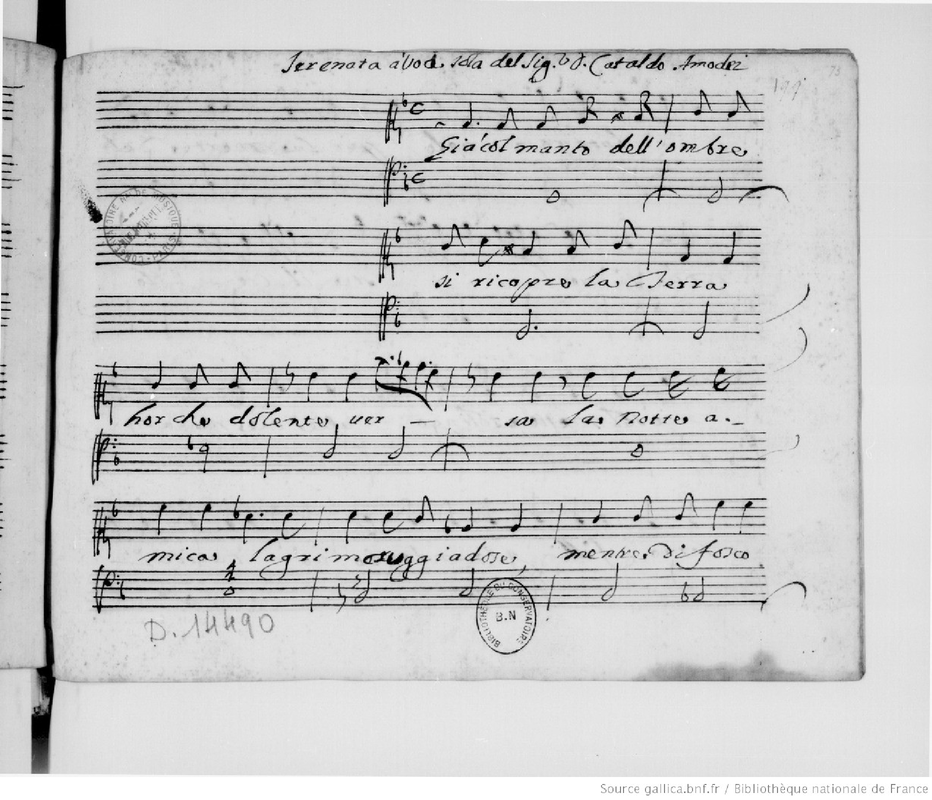 Serenata à Voce sola del Sig.r D. Cataldo Amodei
Già col manto dell'ombre
si ricopre la Terra
hor che dolente ver - sa la Notte a -
mica lagrime ruggiadose, mentre di fosco
D. 14490
BIBLIOTHÈQUE DU CONSERVATOIRE
B.N
Source gallica.bnf.fr / Bibliothèque nationale de France